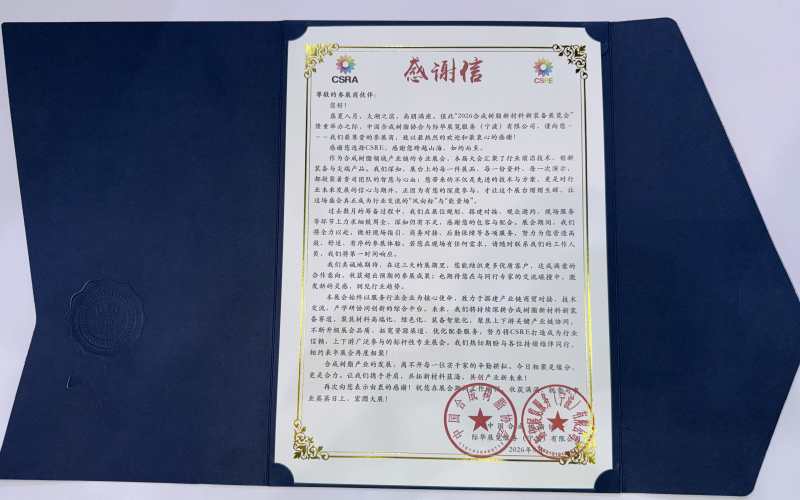 CSRA
感谢信
CSRE
尊敬的参展商伙伴：
您好！
盛夏八月，太湖之滨，高朋满座。值此“2026合成树脂新材料新装备展览会”
隆重举办之际，中国合成树脂协会与际华展览服务（宁波）有限公司，谨向您-
--我们最尊贵的参展商，致以最热烈的欢迎和最衷心的感谢！
感谢您选择CSRE，感谢您跨越山海，如约而至。
作为合成树脂领域产业链的专业展会，本届大会汇聚了行业前沿技术、创新
装备与尖端产品。我们深知，展台上的每一件展品、每一份资料、每一次演示，
都凝聚着贵司团队的智慧与心血；您带来的不仅是先进的技术与方案，更是对行
业未来发展的信心与期许。正因为有您的深度参与，才让这个展台熠熠生辉，让
这场盛会真正成为行业交流的“风向标”与“能量场”。
过去数月的筹备过程中，我们在展位规划、搭建对接、观众邀约、现场服务
等环节上力求细致周全，深知仍有不足，感谢您的包容与配合。展会期间，我们
将全力以赴，做好现场指引、商务对接、后勤保障等各项服务，努力为您营造高
效、舒适、有序的参展体验。若您在现场有任何需求，请随时联系我们的工作人
员，我们将第一时间响应。
我们真诚地期待，在这三天的展期里，您能结识更多优质客户，达成满意的
合作意向，收获超出预期的参展成果；也期待您在与同行专家的交流碰撞中，激
发新的灵感，洞见行业趋势。
本展会始终以服务行业企业为核心使命，致力于搭建产业链商贸对接、技术
交流、产学研协同创新的综合平台。未来，我们将持续深耕合成树脂新材料新装
备赛道，聚焦材料高端化、绿色化、装备智能化，聚焦上下游关键产业链协同，
不断升级展会品质、拓宽资源渠道、优化配套服务，努力将CSRE打造成为行业
信赖、上下游广泛参与的标杆性专业展会。我们热切期盼与各位持续结伴同行，
相约来年展会再度相聚！
合成树脂产业的发展，离不开每一位实干家的辛勤耕耘。今日相聚是缘分，
更是合力。让我们携手并肩，共拓新材料蓝海，共创产业新未来！
再次向您表示由衷的感谢！祝您在展会期间工作顺利、收获满满，祝贵司事
业蒸蒸日上、宏图大展！
中国合成树脂协会
际华展览服务（宁波）有限公司
2026年